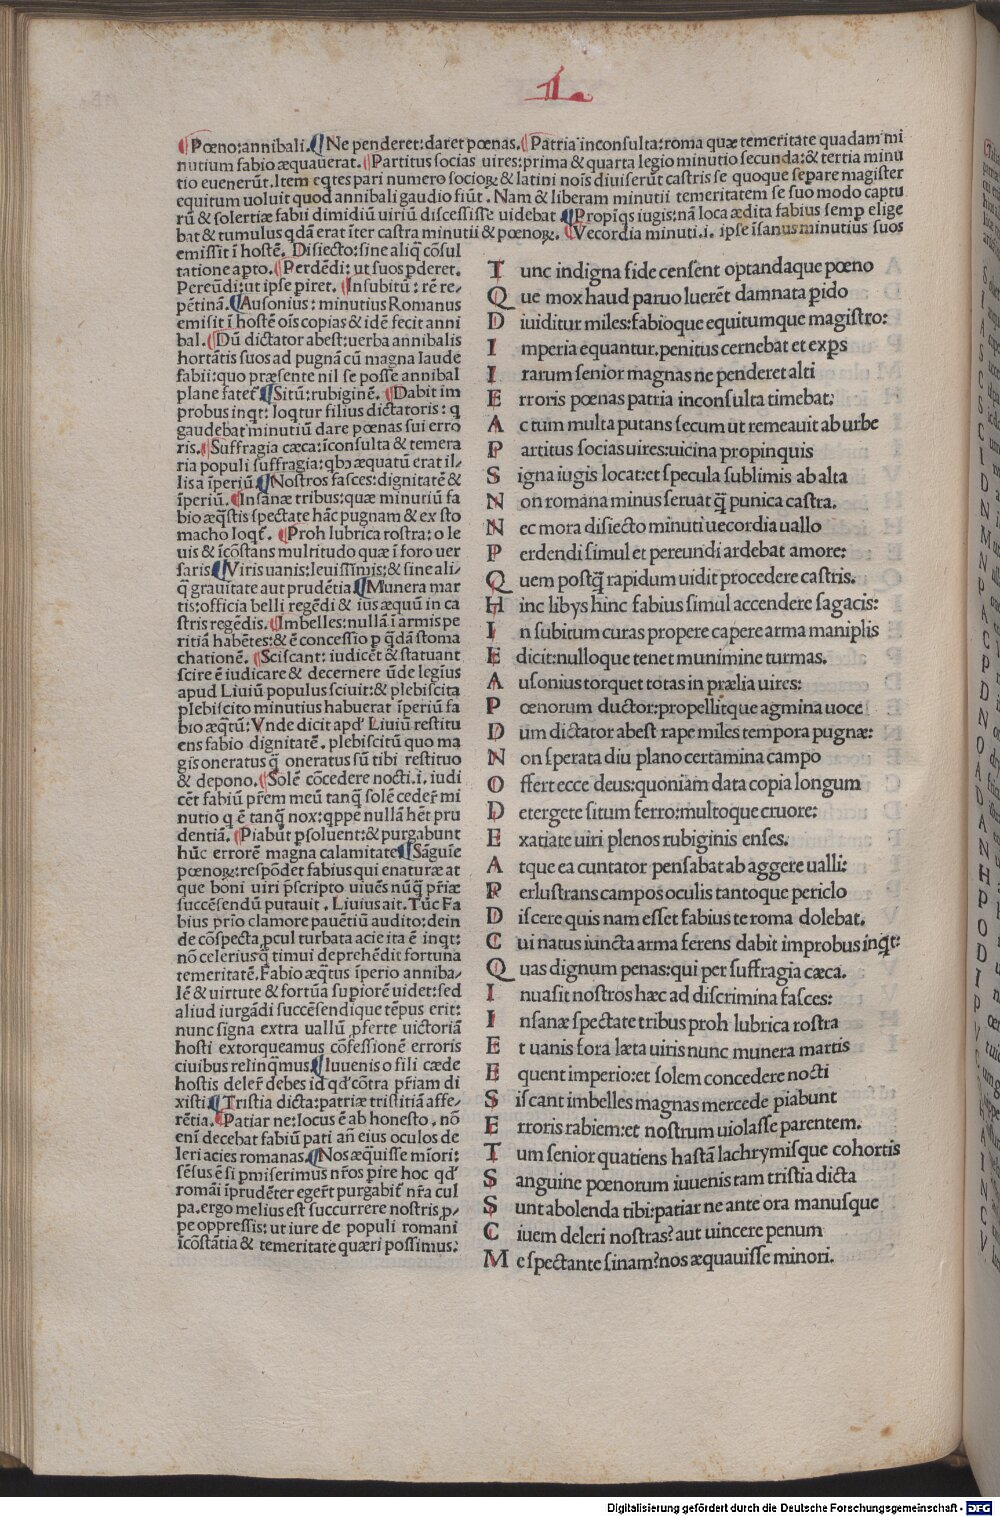 II
Pœno:annibali. Ne penderet:daret pœnas. Patria inconsulta:roma quæ temeritate quadam mi
nutium fabio æquauerat. Partitus socias uires:prima & quarta legio minutio secunda:& tertia minu
tio euenerūt. Item eqtes pari numero socioꝝ & latini nois diuiserūt castris se quoque separe magister
equitum uoluit quod annibali gaudio fiūt. Nam & liberam minutii temeritatem se suo modo captu
rū & solertiæ fabii dimidiū uiriū discessisse uidebat Propiqs iugis:nā loca ædita fabius semp elige
bat & tumulus qdā erat īter castra minutii & pœnoꝝ. Vecordia minuti.i. ipse īsanus minutius suos
emissit ī hostē. Disiecto:sine aliq̄ cōsul
tatione apto. Perdēdi: ut suos pderet.
Pereūdi:ut ipse piret. Insubitū: rē re-
pētinā. Ausonius: minutius Romanus
emisit ī hostē oīs copias & idē fecit anni
bal. Dū dictator abest:uerba annibalis
hortātis suos ad pugnā cū magna laude
fabii:quo præsente nil se posse annibal
plane fatet̄ Sitū:rubiginē. Dabit im
probus inqt: loqtur filius dictatoris: q
gaudebat minutiū dare pœnas sui erro
ris. Suffragia cæca:īconsulta & temera
ria populi suffragia:qbꝫ æquatū erat il-
lis a īperiū Nostros fasces:dignitatē &
īperiū. Insanæ tribus:quæ minutiū fa
bio æq̄stis spectate hāc pugnam & ex sto
macho loqt̄. Proh lubrica rostra: o le
uis & īcōstans multitudo quæ ī foro uer
saris Viris uanis:leuissimis:& sine ali-
q̄ grauitate aut prudētia Munera mar
tis:officia belli regēdi & ius æquū in ca
stris regēdis. Imbelles:nullā ī armis pe
ritiā habētes:& ē concessio p qdā stoma
chationē. Sciscant: iudicēt & statuant
scire ē iudicare & decernere ūde legīus
apud Liuiū populus sciuit:& plebiscita
plebiscito minutius habuerat īperiū fa
bio æq̄tū: Vnde dicit apd' Liuiū restitu
ens fabio dignitatē. plebiscitū quo ma
gis oneratus q̄ oneratus sū tibi restituo
& depono. Solē cōcedere nocti.i. iudi
cēt fabiū pr̄em meū tanq̄ solē ceder̄ mi
nutio q ē tanq̄ nox:qppe nullā hēt pru
dentiā. Piabūt psoluent:& purgabunt
hūc errorē magna calamitate Sāguīe
pœnoꝝ:respōdet fabius qui enaturæ at
que boni uiri p̄scripto uiuēs nūq̄ pr̄iæ
succēsendū putauit. Liuius ait. Tūc Fa
bius pr̄io clamore pauētiū audito:dein
de cōspecta pcul turbata acie ita ē inqt:
nō celeriusq̄ timui deprehēdit fortuna
temeritatē. Fabio æq̄tus īperio anniba-
lē & uirtute & fortūa supiorē uidet:sed
aliud iurgādi succēsendique tēpus erit:
nunc signa extra uallū pferte uictoriā
hosti extorqueamus cōfessionē erroris
ciuibus relinq̄mus Iuuenis o fili cæde
hostis deler̄ debes id qd' cōtra pr̄iam di
xisti Tristia dicta:patriæ tristitiā affe-
rētia. Patiar ne:locus ē ab honesto. nō
enī decebat fabiū pati añ eius oculos de
leri acies romanas. Nos æq̄uisse mīori:
sēsus ē si pmiserimus nr̄os pire hoc qd'
romāi īprudēter eger̄t purgabit̄ nr̄a cul
pa.ergo melius est succurrere nostris p-
pe oppressis: ut iure de populi romani
īcōstātia & temeritate quæri possimus:
Tunc indigna fide censent optandaque pœno
Que mox haud paruo luerēt damnata pido
Diuiditur miles:fabioque equitumque magistro:
Imperia equantur.penitus cernebat et exps
Irarum senior magnas ne penderet alti
Erroris pœnas patria inconsulta timebat:
Ac tum multa putans secum ut remeauit ab urbe
Partitus socias uires:uicina propinquis
Signa iugis locat:et specula sublimis ab alta
Non romana minus seruat q̄ punica castra.
Nec mora disiecto minuti uecordia uallo
Perdendi simul et pereundi ardebat amore:
Quem postq̄ rapidum uidit procedere castris.
Hinc libys hinc fabius simul accendere sagacis:
In subitum curas propere capere arma maniplis
Edicit:nulloque tenet munimine turmas.
Ausonius torquet totas in prælia uires:
Pœnorum ductor:propellitque agmina uoce
Dum dictator abest rape miles tempora pugnæ:
Non sperata diu plano certamina campo
Offert ecce deus:quoniam data copia longum
Detergete situm ferro:multoque cruore:
Exatiate uiri plenos rubiginis enses.
Atque ea cuntator pensabat ab aggere ualli:
Perlustrans campos oculis tantoque periclo
Discere quis nam esset fabius te roma dolebat.
Cui natus iuncta arma ferens dabit improbus inq̄t:
Quas dignum penas:qui per suffragia cæca.
Inuasit nostros hæc ad discrimina fasces:
Insanæ spectate tribus proh lubrica rostra
Et uanis fora læta uiris nunc munera martis
Equent imperio:et solem concedere nocti
Siscant imbelles magnas mercede piabunt
Erroris rabiem:et nostrum uiolasse parentem.
Tum senior quatiens hastā lachrymisque cohortis
Sanguine pœnorum iuuenis tam tristia dicta
Sunt abolenda tibi:patiar ne ante ora manusque
Ciuem deleri nostras? aut uincere penum
Me spectante sinam?nos æquauisse minori.
Digitalisierung gefördert durch die Deutsche Forschungsgemeinschaft - DFG